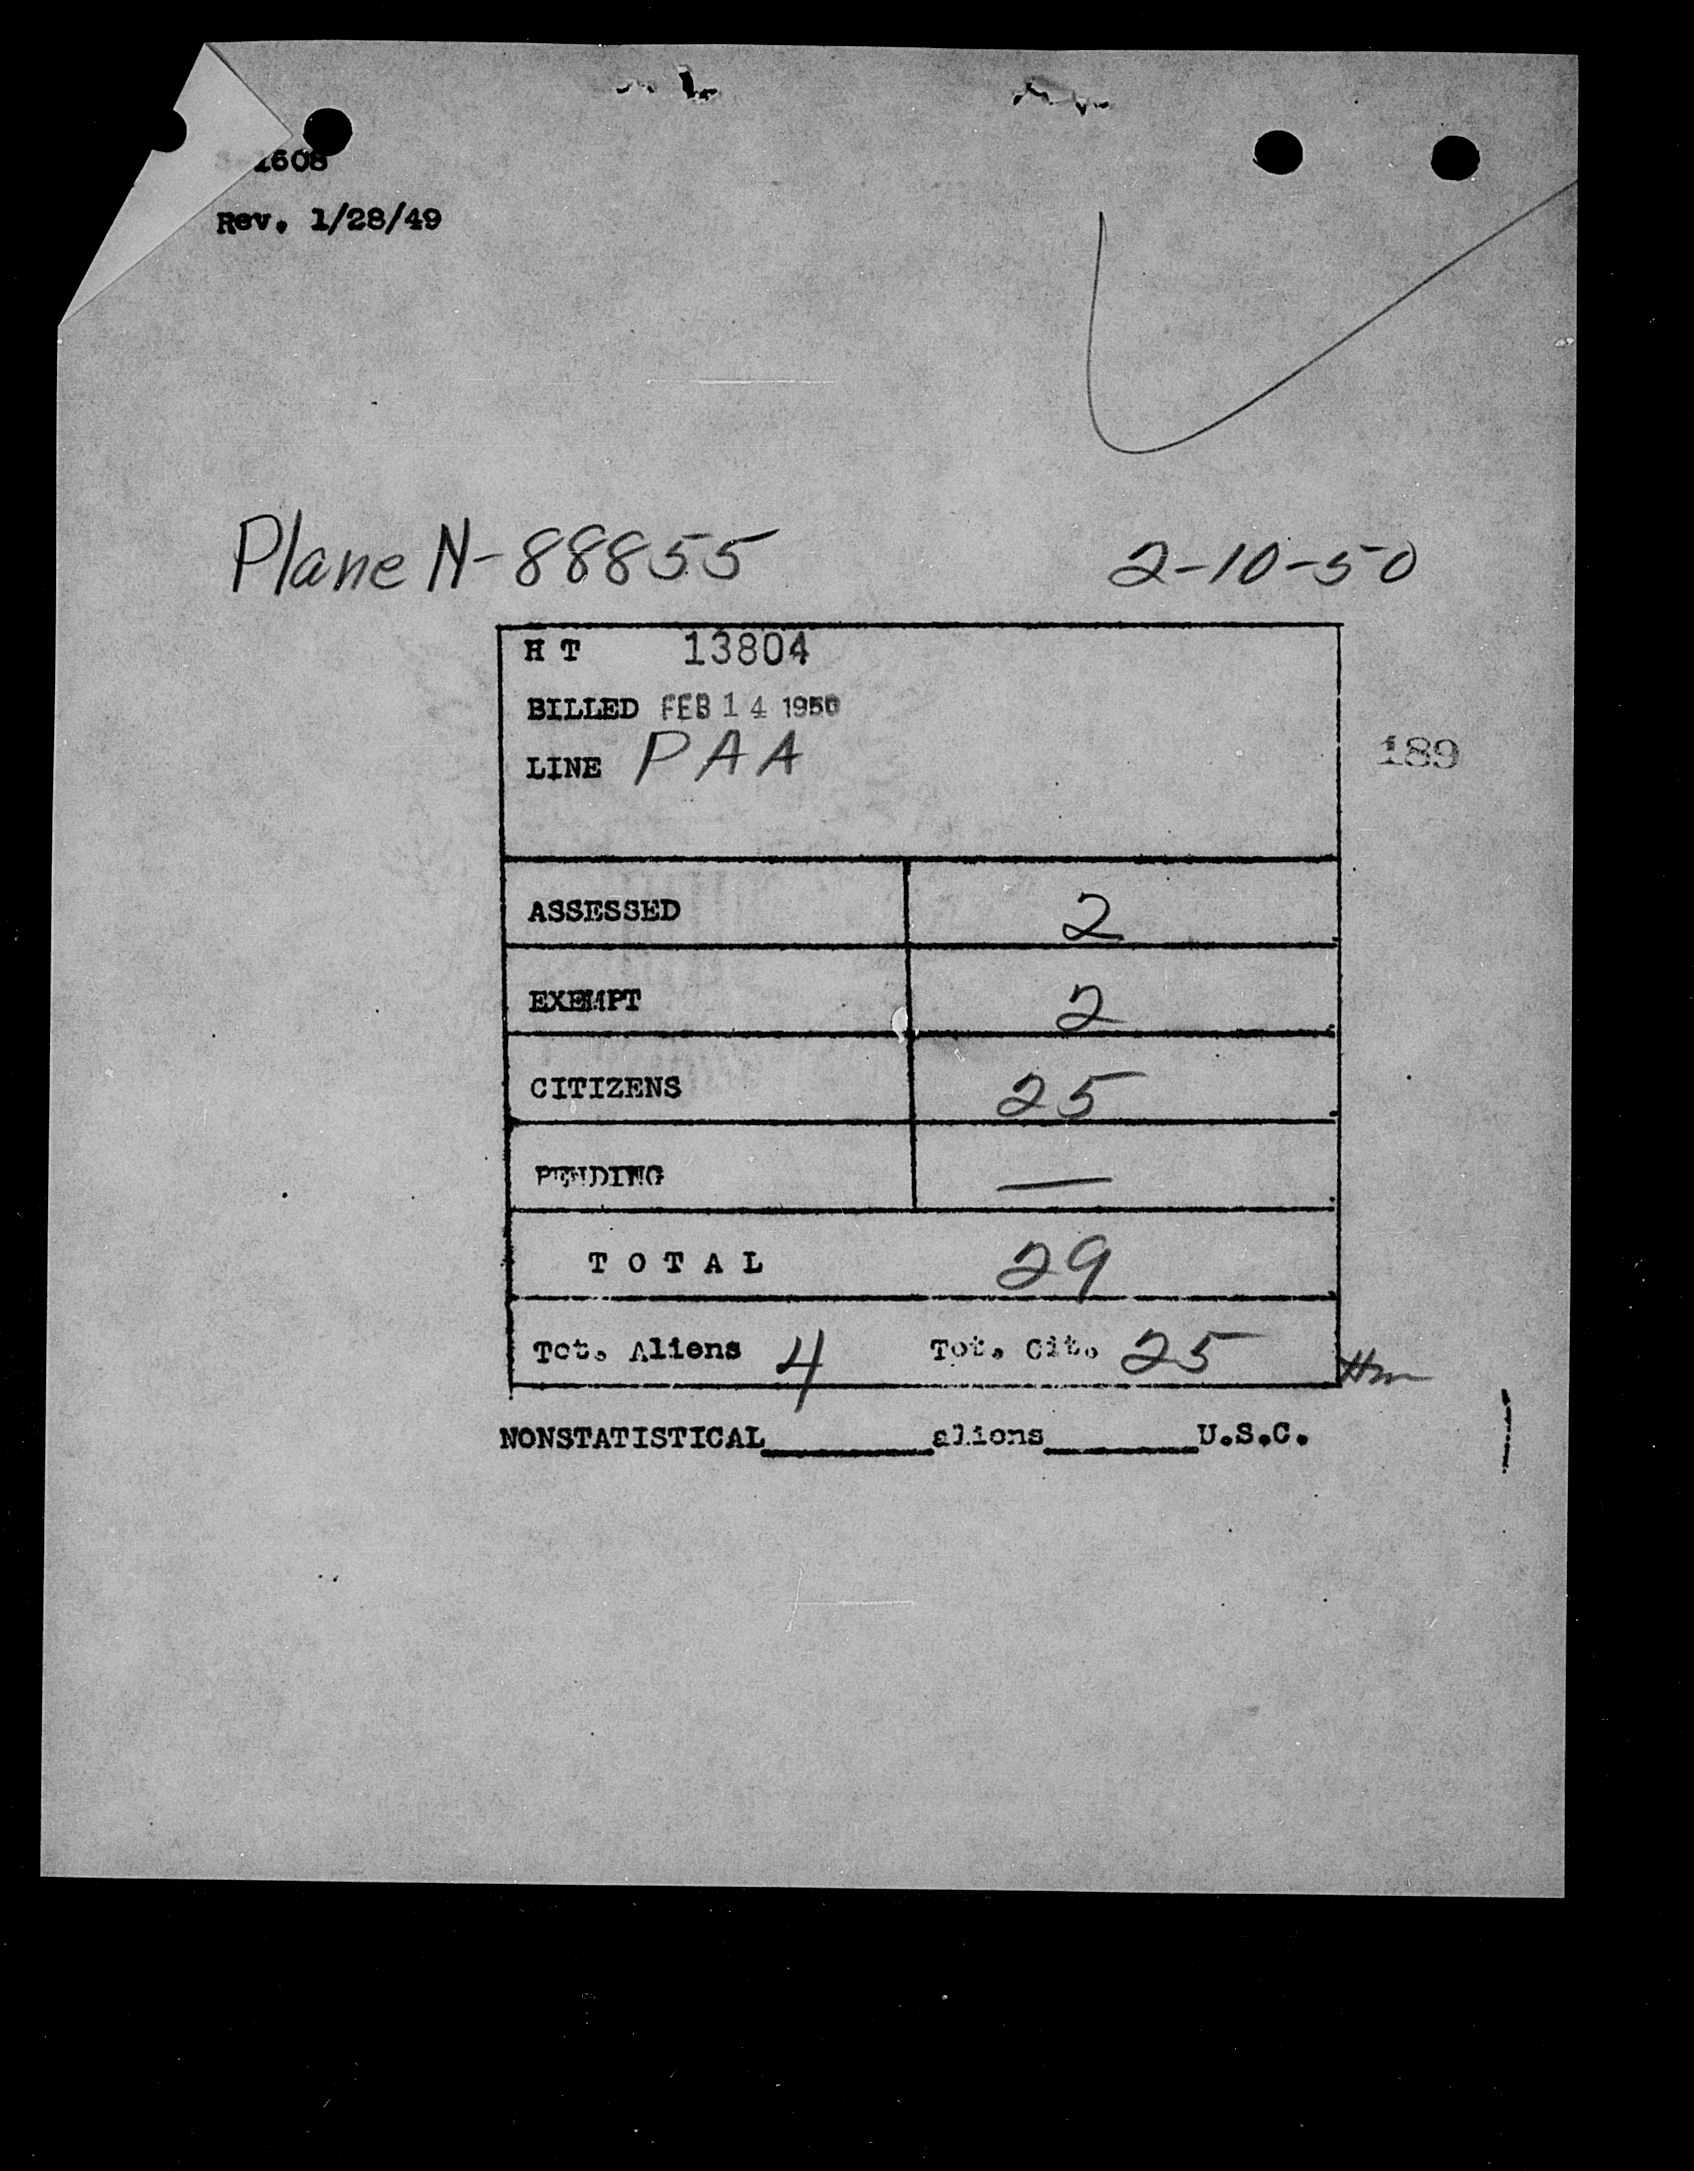 1608
Rev. 1/28/49
Plane N-88855 2-10-50
H T 13804
BILLED FEB 14 1950
LINE PAA
189
ASSESSED 2
EXEMPT 2
CITIZENS 25
PENDING —
TOTAL 29
Tot. Aliens 4 Tot. Cit. 25
NONSTATISTICAL________aliens________U.S.C.